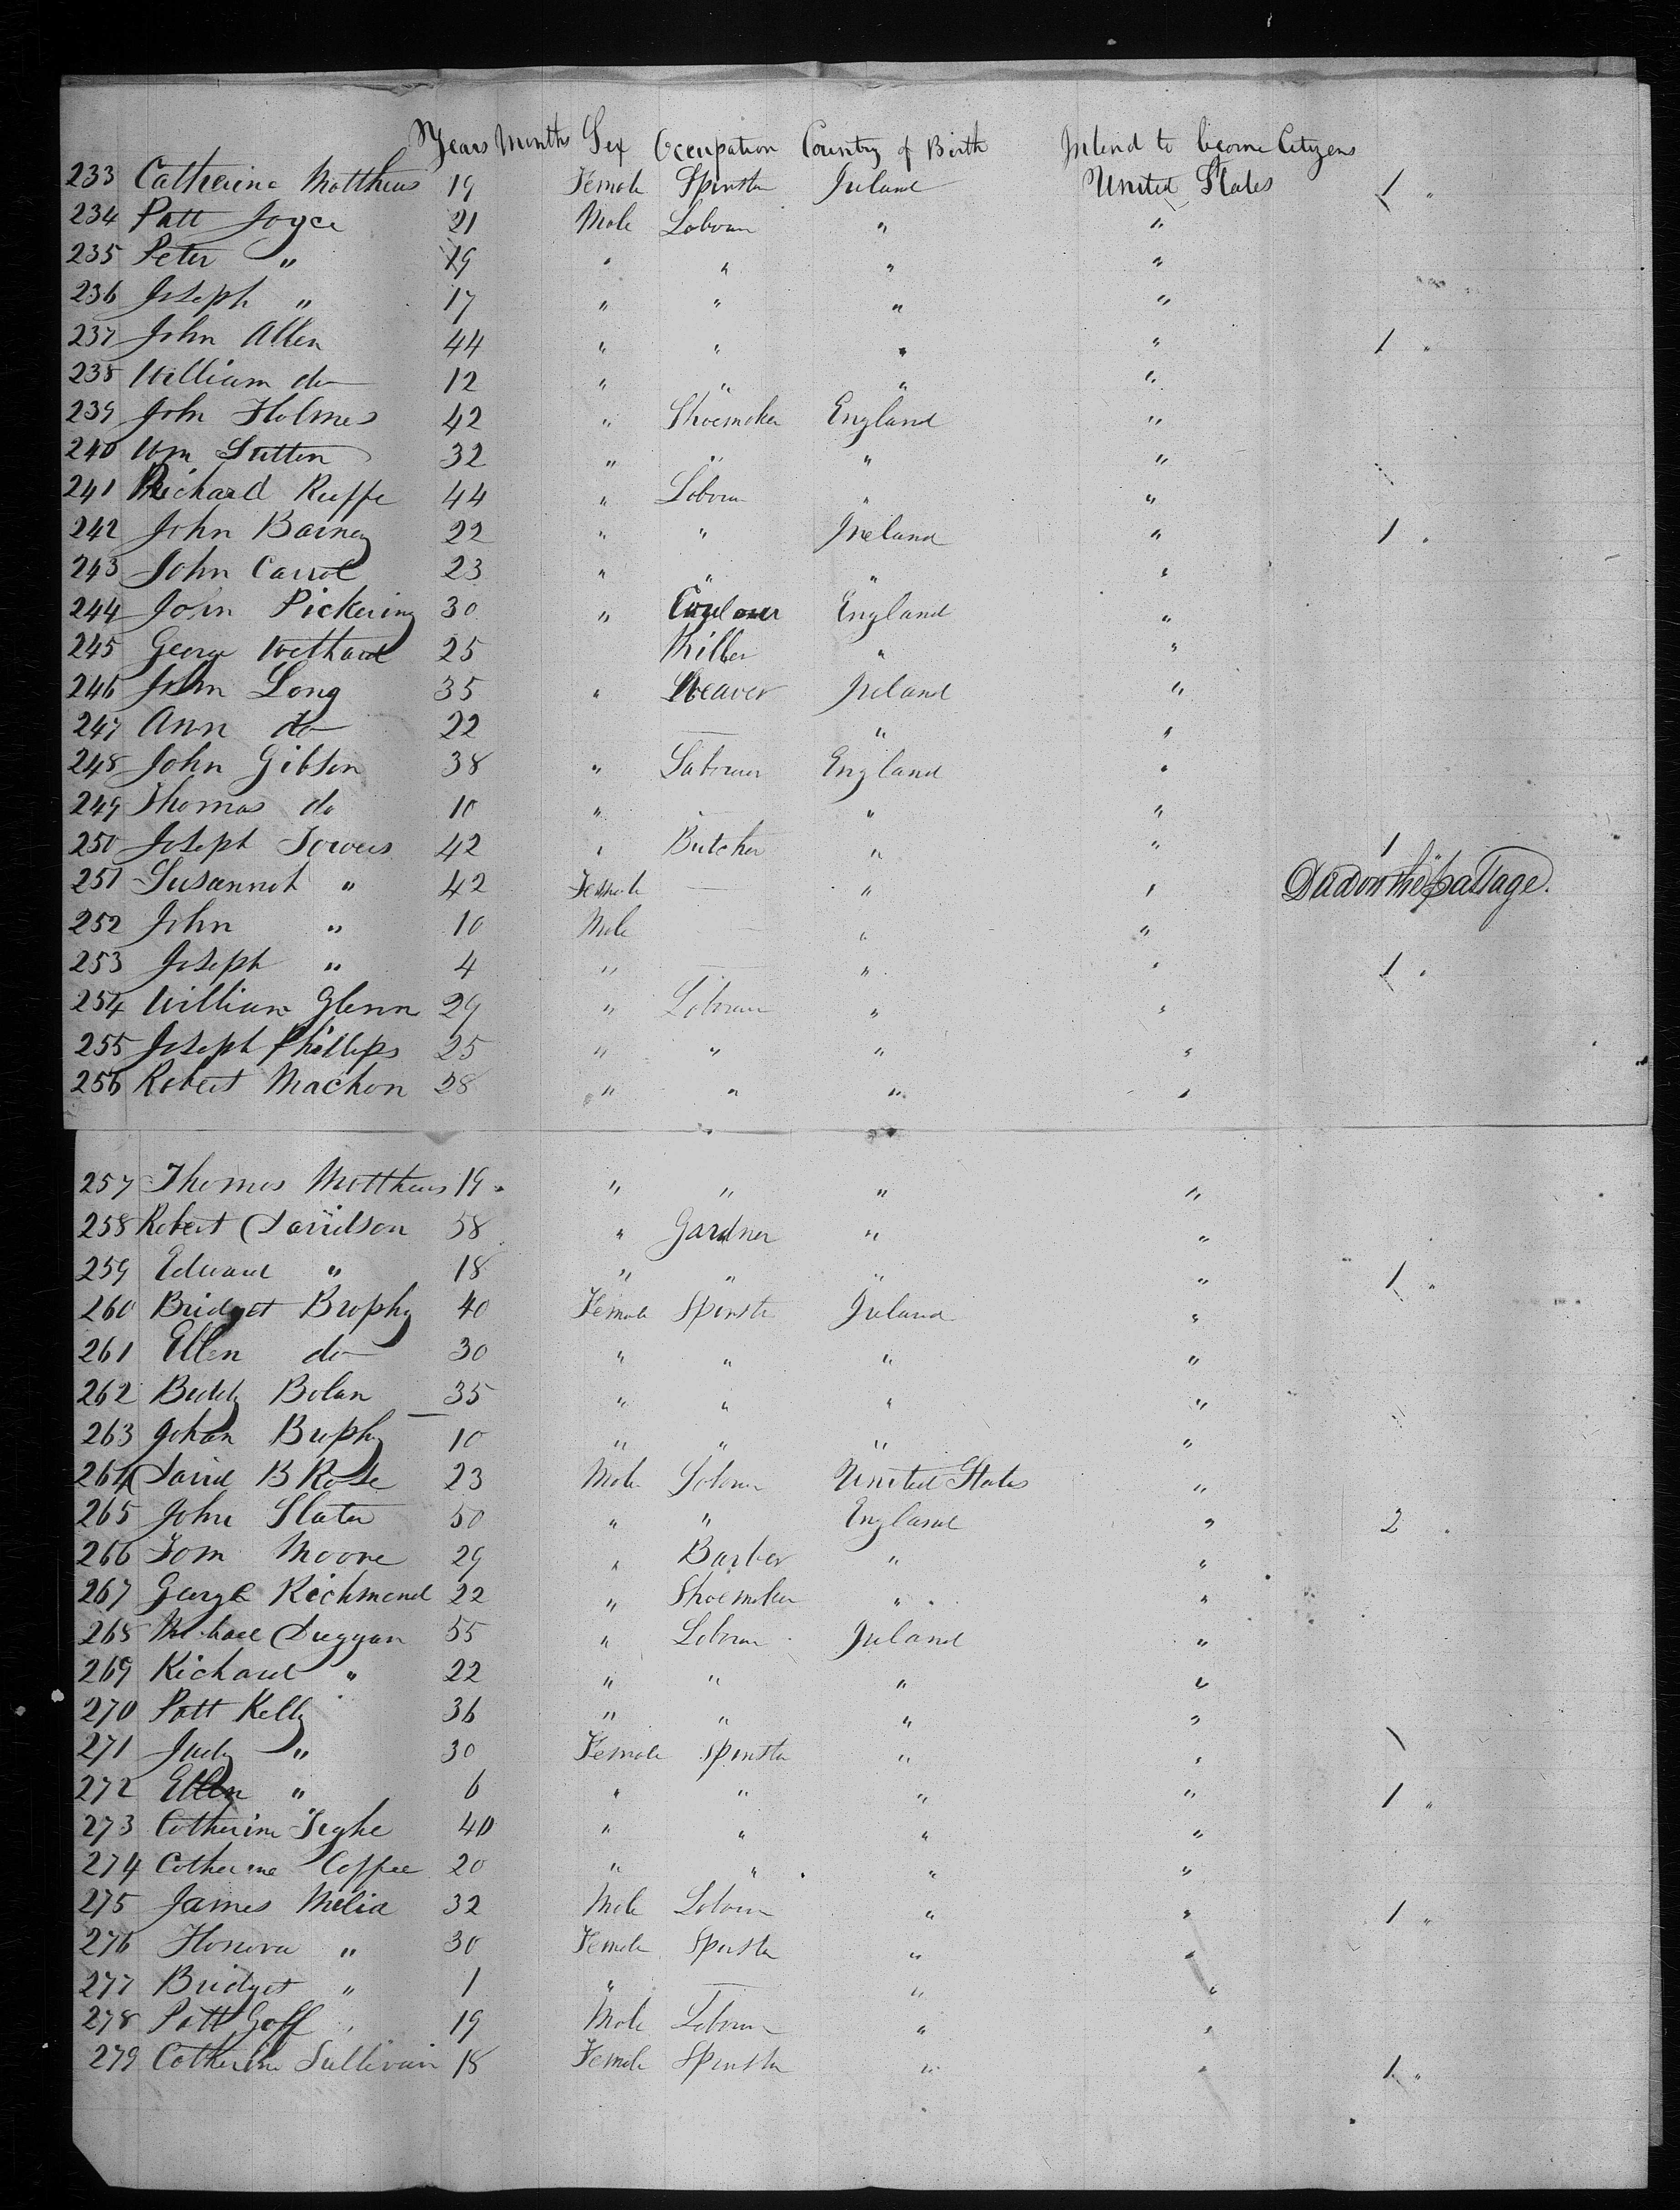 Years Months Sex Occupation Country of Birth Intend to become Citizens
233 Catherine Matthews 19 Female Spinster Ireland United States 1 "
234 Patt Joyce 21 Male Labourer " "
235 Peter " 19 " " " "
236 Joseph " 17 " " " "
237 John Allen 44 " " " " 1 "
238 William do 12 " " " "
239 John Holmes 42 " Shoemaker England "
240 Wm Sutton 32 " " " "
241 Richard 44 " Labourer " "
242 John Barney 22 " " Ireland " 1 "
243 John Carrol 23 " " " "
244 John Pickering 30 " England "
245 George 25 Miller " "
246 John Long 35 " Weaver Ireland "
247 Ann do 22 — " "
248 John Gibson 38 " Labourer England "
249 Thomas do 10 " — " "
250 Joseph Towers 42 " Butcher " " 1 "
251 Susannah " 42 Female — " " Died on the passage.
252 John " 10 Male — " "
253 Joseph " 4 " — " " 1 "
254 William Glenn 29 " Labourer " "
255 Joseph Phillips 25 " " " "
256 Robert Machon 28 " " " "
257 Thomas Matthews 19 " " " "
258 Robert Davidson 58 " Gardner " "
259 Edward " 18 " " " " 1 "
260 Bridget Brophy 40 Female Spinster Ireland "
261 Ellen do 30 " " " "
262 Biddy Bolan 35 " " " "
263 Johan Brophy 10 " " " "
264 David B Rose 23 Male Labourer United States "
265 John Slater 50 " " England " 2 "
266 Tom Moore 29 " Barber " "
267 George Richmond 22 " Shoemaker " "
268 Michael Duggan 55 " Labourer Ireland "
269 Richard " 22 " " " "
270 Patt Kelly 36 " " " "
271 Judy " 30 Female Spinster " "
272 Ellen " 6 " " " " 1 "
273 Catherine Tighe 40 " " " "
274 Catherine Coffee 20 " " " "
275 James Melia 32 Male Labourer " " 1 "
276 Honora " 30 Female Spinster " "
277 Bridget " 1 " — " "
278 Patt Goff 19 Male Labourer " "
279 Catherine Sullivan 18 Female Spinster " " 1 "